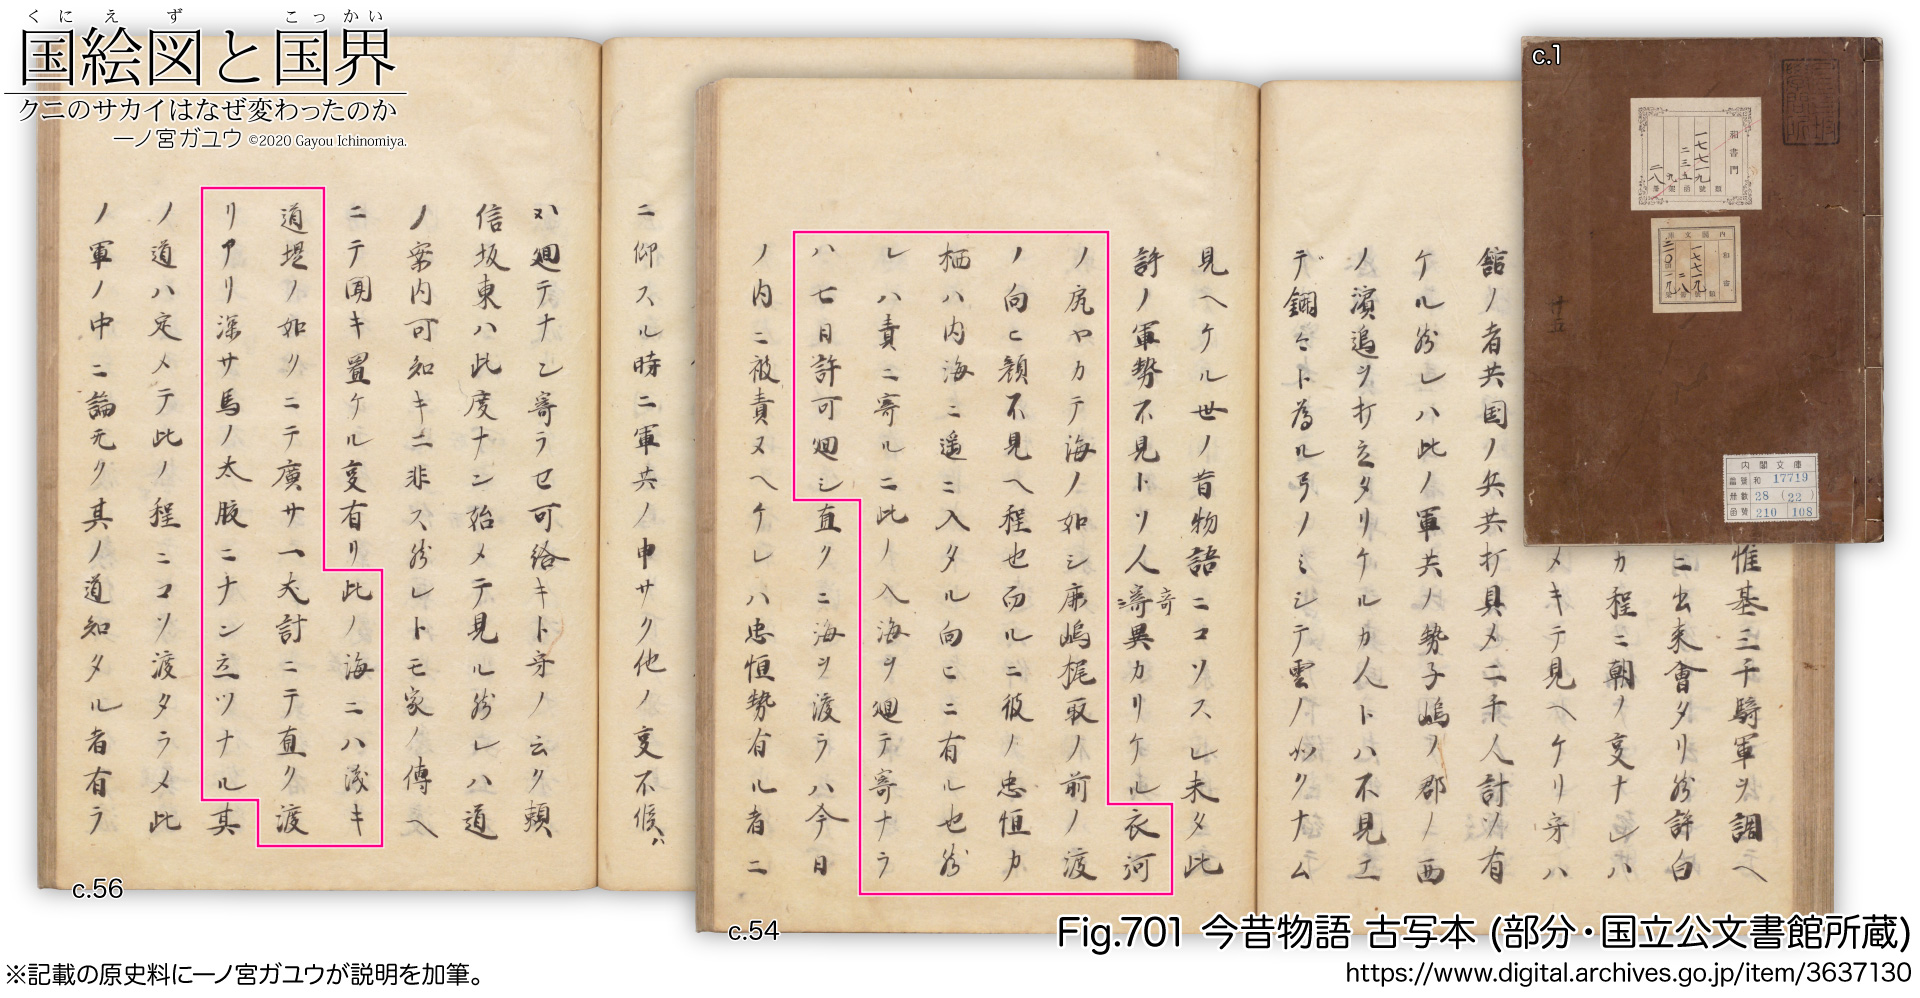 くにえず こっかい
国絵図と国界
クニのサカイはなぜ変わったのか
一ノ宮ガユウ ©2020 Gayou Ichinomiya.
c.1
和書門
一七七一九
二三五
九
二八
類 號 函 架 冊
内閣文庫
和書
一七七一九
二八
内閣文庫
番號 和 17719
冊數 28 (22)
函號 210 108
廿五
惟基三千騎軍ヲ調ヘ
ニ出来會タリ然許白
カ程ニ朝ノ事ナレハ
メキテ見ヘケリ守ハ
館ノ者共国ノ兵共打具メ二千人計ソ有
ケル然レハ此ノ軍共ノ勢子嶋ノ郡ノ西
ノ濱追ヲ打立タリケルカ人トハ不見エ
デ鐗々ト為ル弓ノミシテ雲ノ如クナム
見ヘケル世ノ昔物語ニコソスレ未タ此
許ノ軍勢不見トソ人寄異カリケル衣河
ノ尻ヤカテ海ノ如シ鹿嶋梶取ノ前ノ渡
ノ向ヒ顔不見ヘ程也而ルニ彼ノ忠恒カ
栖ハ内海ニ遥ニ入タル向ヒニ有ル也然
レハ責ニ寄ルニ此ノ入海ヲ廻テ寄ナラ
ハ七日許可廻シ直クニ海ヲ渡ラハ今日
ノ内ニ被責ヌヘケレハ忠恒勢有ル者ニ
c.54
ニ仰スル時ニ軍共ノ申サク他ノ事不候ハ
廻テナン寄ラセ可給キト守ノ云ク頼
信坂東ハ此度ナン始メテ見ル然レハ道
ノ案内可知キニ非ス然レトモ家ノ傳ヘ
ニテ聞キ置ケル事有リ此ノ海ニハ淺キ
道堤ノ如クニテ廣サ一丈計ニテ直ク渡
リアリ深サ馬ノ太腹ニナン立ツナル其
ノ道ハ定メテ此ノ程ニコソ渡タラメ此
ノ軍ノ中ニ論元ク其ノ道知タル者有ラ
c.56
Fig.701 今昔物語 古写本 (部分・国立公文書館所蔵)
https://www.digital.archives.go.jp/item/3637130
※記載の原史料に一ノ宮ガユウが説明を加筆。